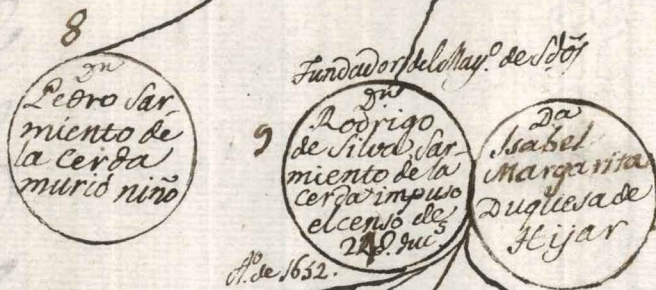 8
Dn
Pedro Sar-
miento de
la Cerda
murió niño
Fundador del May.º de
9
Dn
Rodrigo
de Silva Sar-
miento de la
Cerda impuso
el censo de
duc.s
Aº. de 1652.
Da
Isabel
Margarita
Duquesa de
Hijar